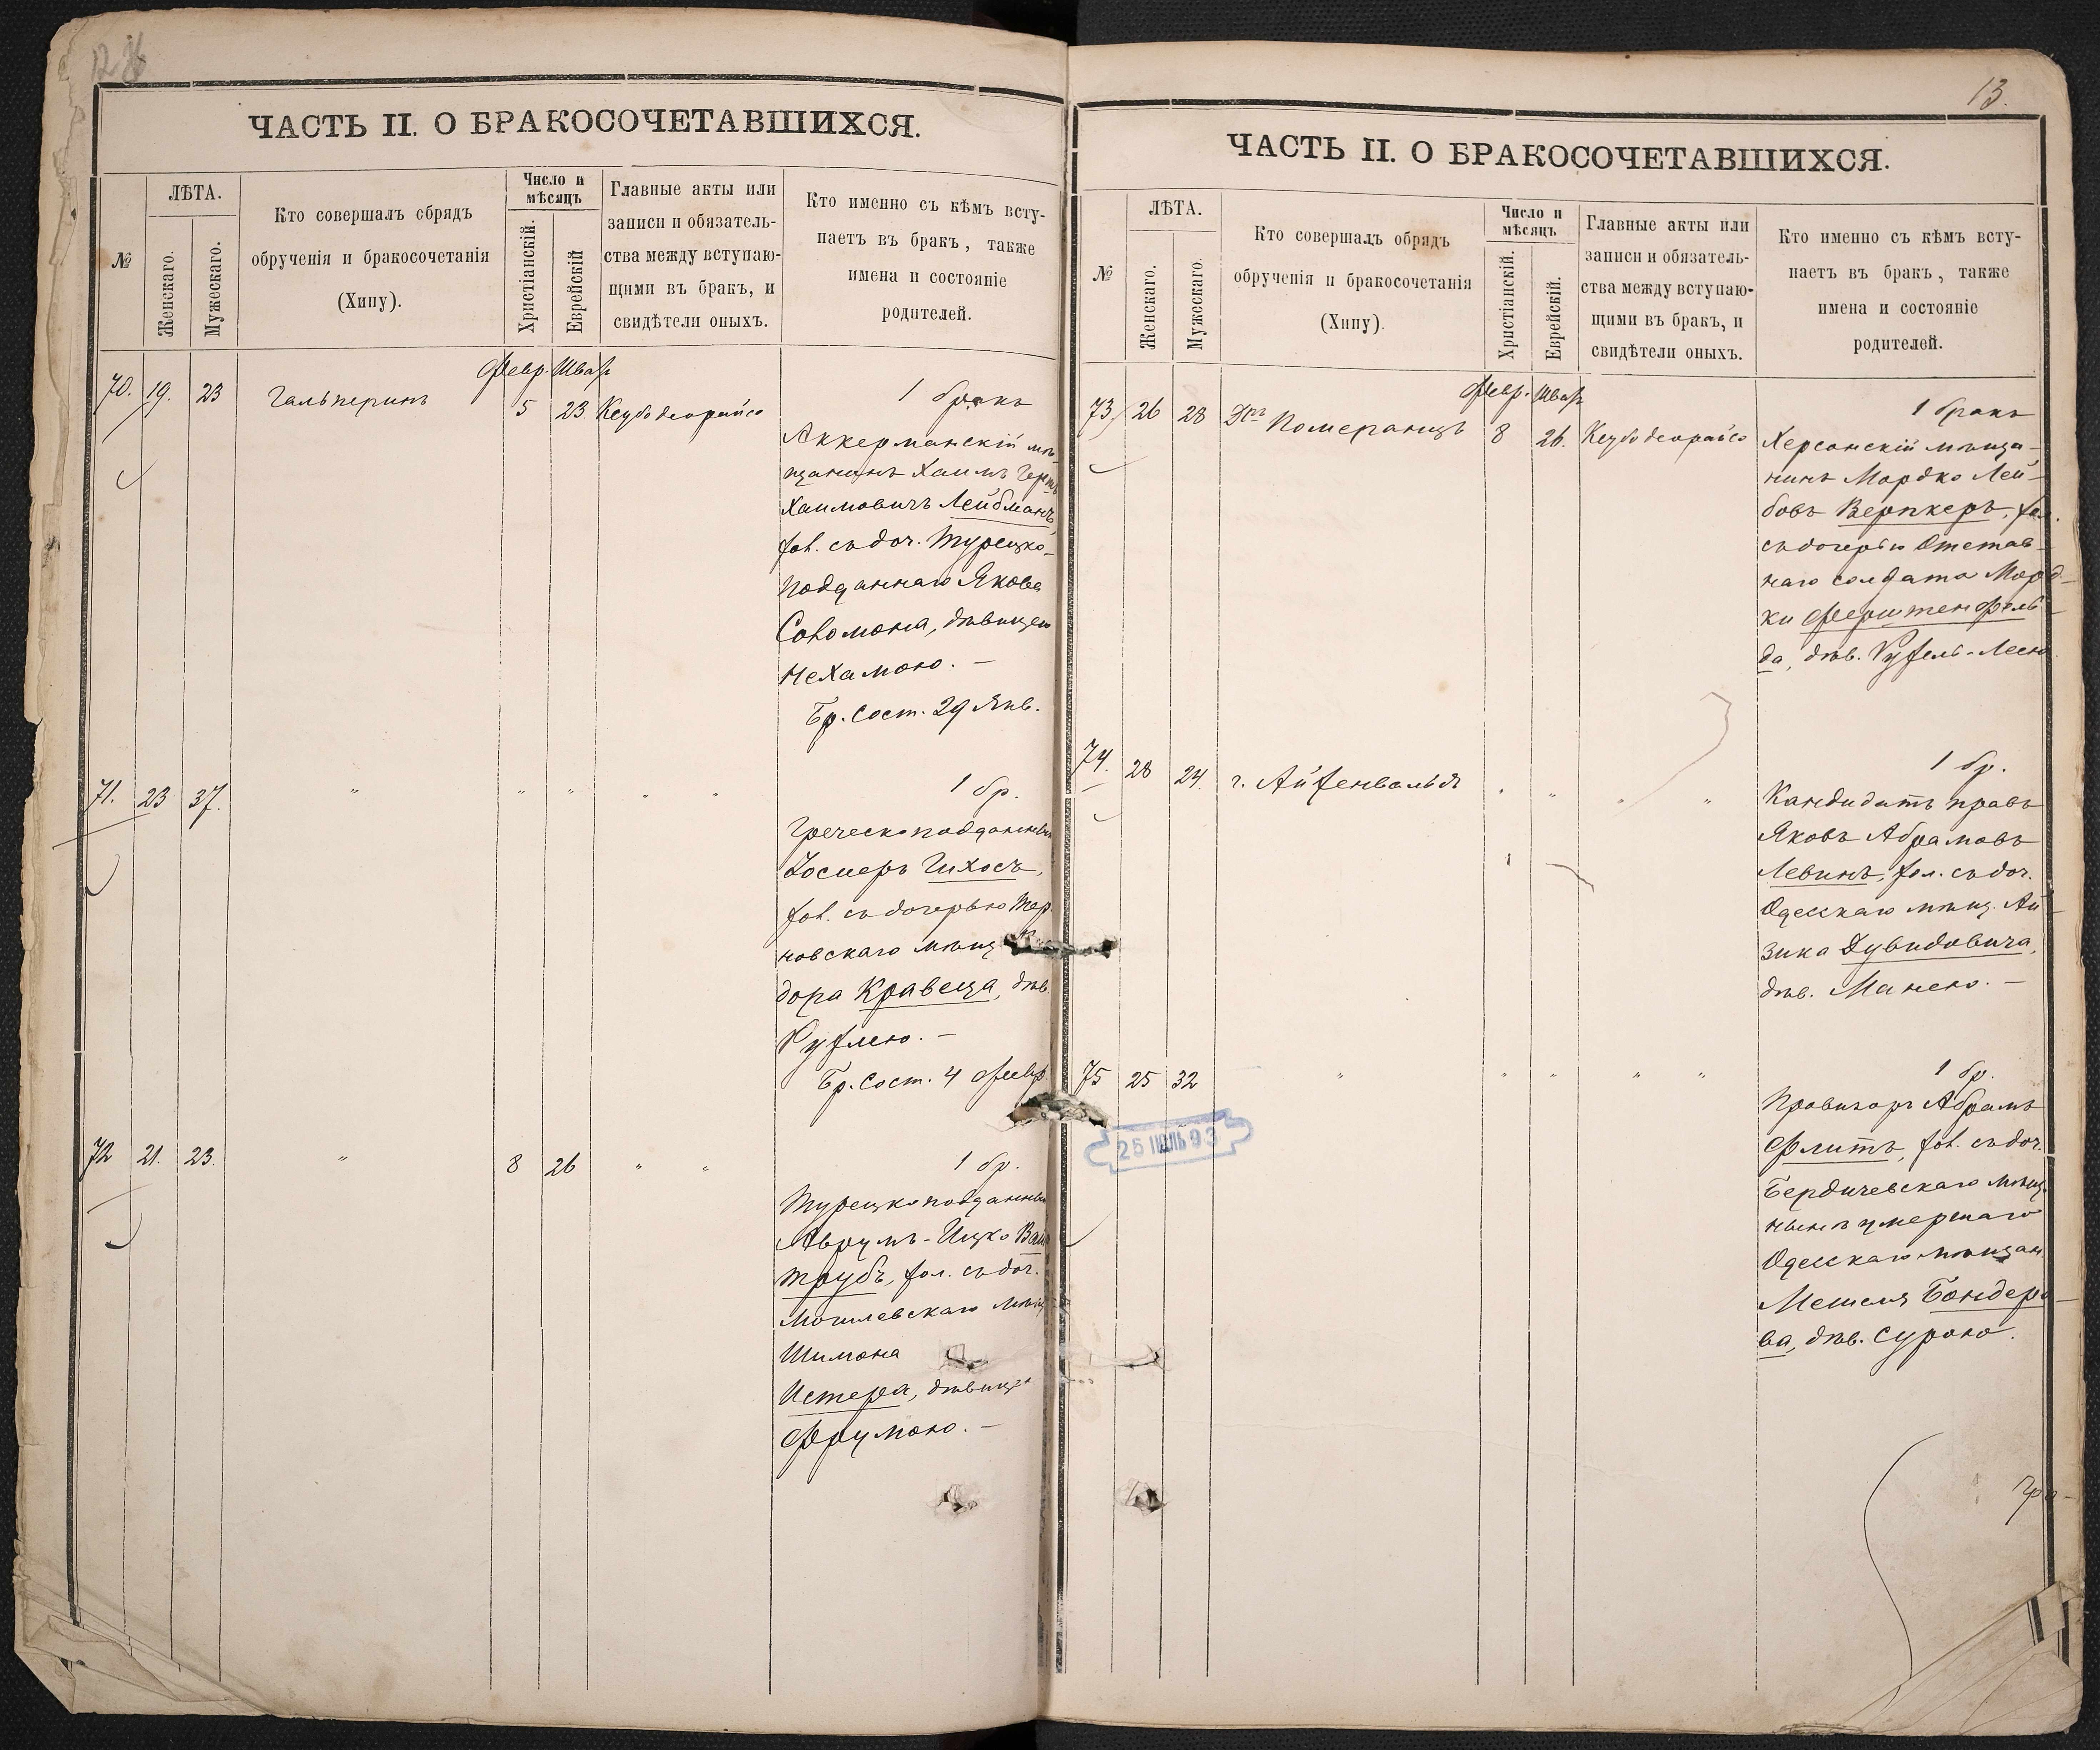 ЧАСТЬ II. О БРАКОСОЧЕТАВШИХСЯ.
№
ЛѢТА.
Женскаго.
Мужескаго.
Кто совершалъ обрядъ
обрученія и бракосочетанія
(Хипу).
Число и
мѣсяцъ
Христіанскій.
Еврейскій
Главные акты или
записи и обязатель-
ства между вступаю-
щими въ бракъ, и
свидѣтели оныхъ.
Кто именно съ кѣмъ всту-
паетъ въ бракъ, также
имена и состояніе
родителей.
Февр. Шват
70. 19. 23 Гальперинъ 5 23. Ксубо деорайсо 1 бракъ
Аккерманскій мѣ-
щанинъ Хаимъ Герш
Хаимовичъ Лейбманъ,
хол. съ доч. Турецко-
подданнаго Якова
Соломона, дѣвицею
Нехамою. —
Бр. сост. 29 Янв.
71. 23 37. " " " " " 1 бр.
Греческоподданный
Іосиеръ Чихосъ,
хол. съ дочерью Тер
новскаго мѣщ
дора Кравеца, дѣв.
Рухлею. —
Бр. сост. 4 Февр.
72 21. 23. " 8 26 " " 1 бр.
Турецкоподданный
Аврумъ-Ицко Вай
трубъ, хол. съ доч.
Могилевскаго мѣщ
Шимона
Истера, дѣвицею
Фрумою. —
13.
ЧАСТЬ II. О БРАКОСОЧЕТАВШИХСЯ.
№
ЛѢТА.
Женскаго.
Мужескаго.
Кто совершалъ обрядъ
обрученія и бракосочетанія
(Хипу).
Число и
мѣсяцъ
Христіанскій.
Еврейскій.
Главные акты или
записи и обязатель-
ства между вступаю-
щими въ бракъ, и
свидѣтели оныхъ.
Кто именно съ кѣмъ всту-
паетъ въ бракъ, также
имена и состояніе
родителей.
Февр. Шват
73 26 28 Дръ Померанцъ 8 26. Ксубо деорайсо 1 бракъ
Херсонскій мѣща-
нинъ Мордко Лей-
бовъ Верпкеръ, хол.
съ дочерью Отстав-
наго солдата Морд-
ки Ферштенфель-
да, дѣв. Рухель-Леею
74. 28 24. г. Айхенвальдъ " " " " 1 бр.
Кандидатъ правъ
Яковъ Абрамовъ
Левинъ, хол. съ доч.
Одесскаго мѣщ. Ай-
зика Дувидовича,
дѣв. Манею. —
75 25 32 " " " " " 1 бр.
Провизоръ Абрамъ
Флитъ, хол. съ доч.
Бердичевскаго мѣщ.
нынѣ умершаго
Одесскаго мѣщан.
Мешеля Бондере-
ва, дѣв. Сурою.
25 ІЮЛЬ 93